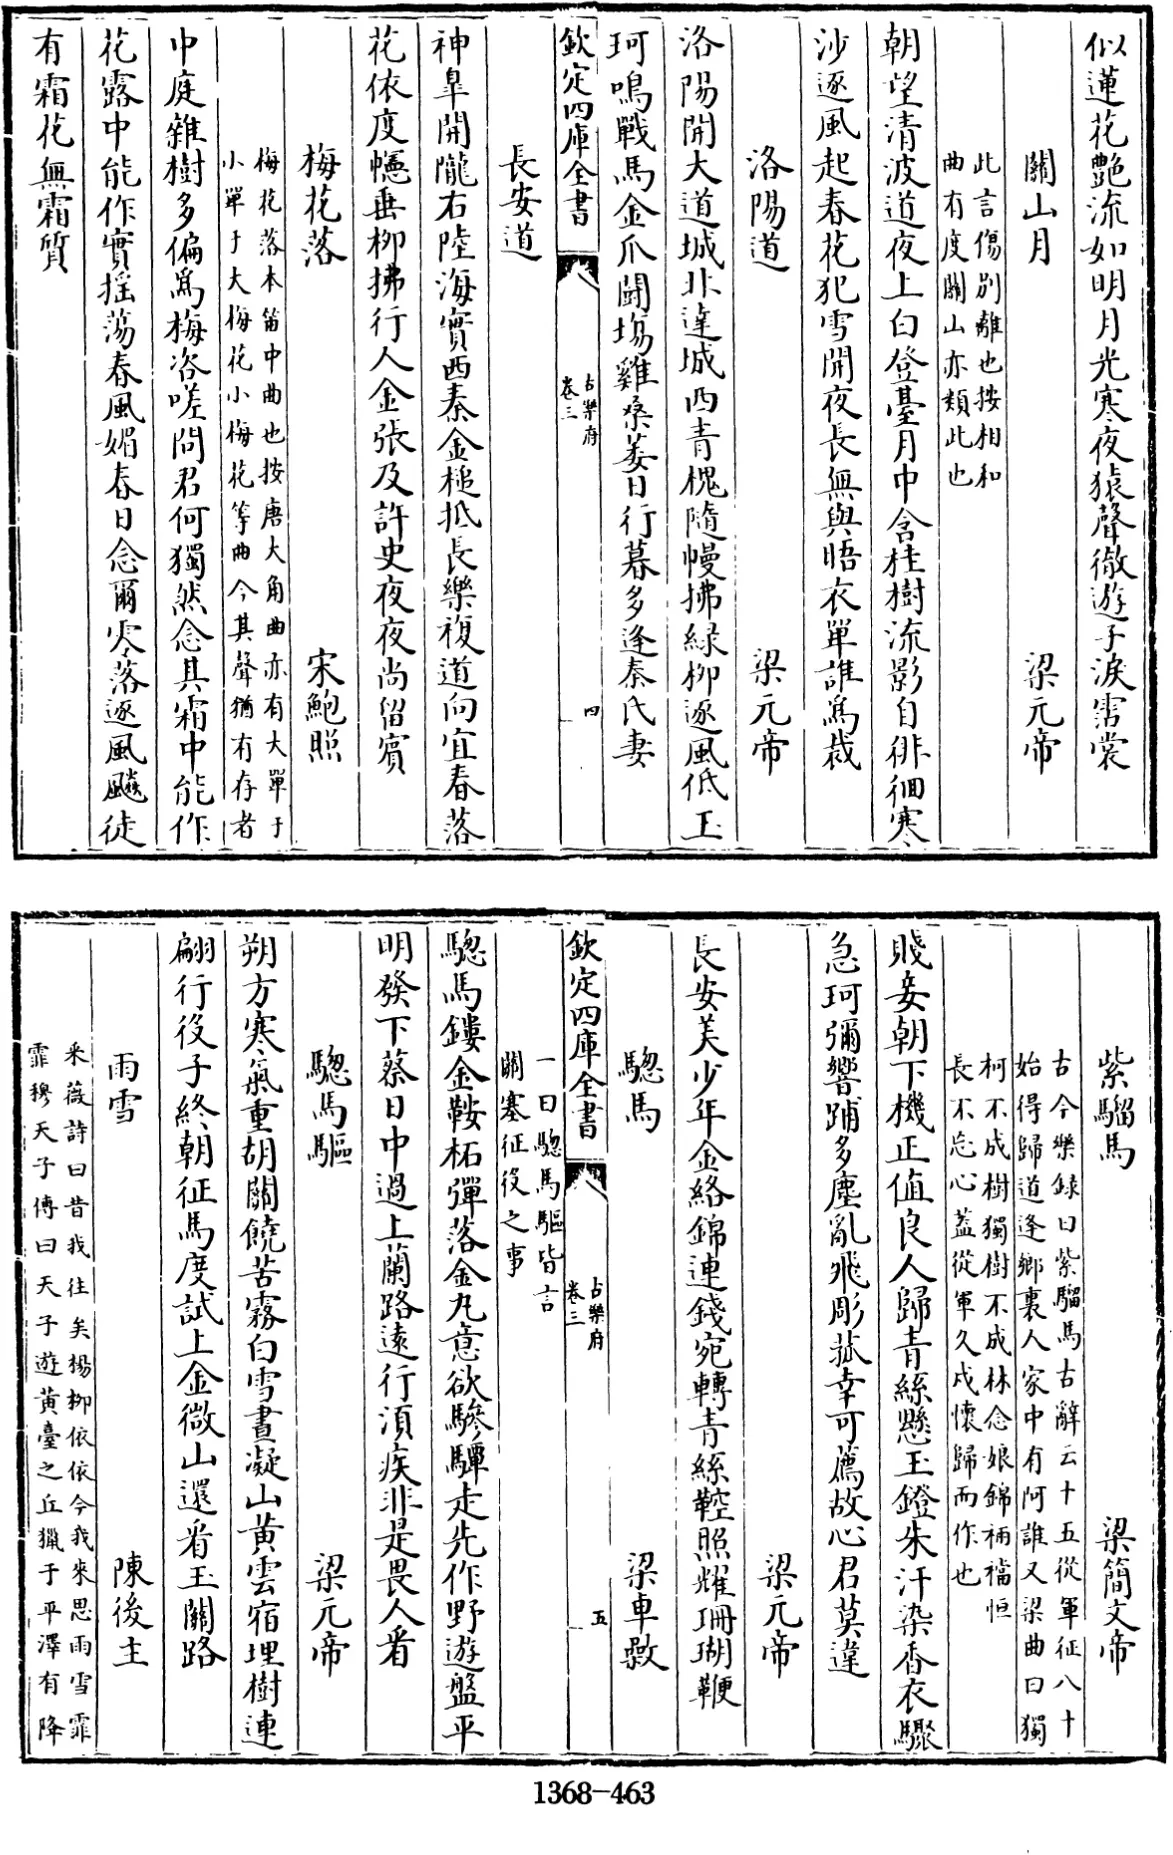 似蓮花艷流如明月光寒夜猿聲徹遊子淚霑裳
關山月　梁元帝
此言傷別離也按相和
曲有度關山亦類此也
朝望清波道夜上白登臺月中含桂樹流影自徘徊寒
沙逐風起春花犯雪開夜長無與晤衣單誰爲裁
洛陽道　梁元帝
洛陽開大道城北達城西青槐隨幔拂緑柳逐風低玉
珂鳴戰馬金爪鬭塲雞桑萎日行暮多逢秦氏妻
欽定四庫全書
古樂府
卷三
四
長安道
神臯開隴右陸海實西秦金槌抵長樂複道向宜春落
花依度幰垂柳拂行人金張及許史夜夜尚留賓
梅花落　宋鮑照
梅花落本笛中曲也按唐大角曲亦有大單于
小單于大梅花小梅花等曲今其聲猶有存者
中庭雜樹多偏爲梅咨嗟問君何獨然念其霜中能作
花露中能作實揺蕩春風媚春日念爾零落逐風飈徒
有霜花無霜質
紫騮馬　梁簡文帝
古今樂録曰紫騮馬古辭云十五從軍征八十
始得歸道逢鄉裏人家中有阿誰又梁曲曰獨
柯不成樹獨樹不成林念娘錦裲襠恒
長不忘心蓋從軍久戍懷歸而作也
賤妾朝下機正值良人歸青絲懸玉鐙朱汗染香衣驟
急珂彌響跼多塵亂飛彫菰幸可薦故心君莫違
梁元帝
長安美少年金絡錦連錢宛轉青絲鞚照耀珊瑚鞭
驄馬　梁車𣤶
欽定四庫全書
古樂府
卷三
五
一曰驄馬驅皆言
關塞征役之事
驄馬鏤金鞍柘彈落金丸意欲驂驔走先作野遊盤平
明發下蔡日中過上蘭路遠行須疾非是畏人看
驄馬驅　梁元帝
朔方寒氣重胡關饒苦霧白雪晝凝山黄雲宿埋樹連
翩行役子終朝征馬度試上金微山還看玉關路
雨雪　陳後主
采薇詩曰昔我往矣楊柳依依今我來思雨雪霏
霏穆天子傳曰天子遊黄臺之丘獵于平澤有降
1368-463